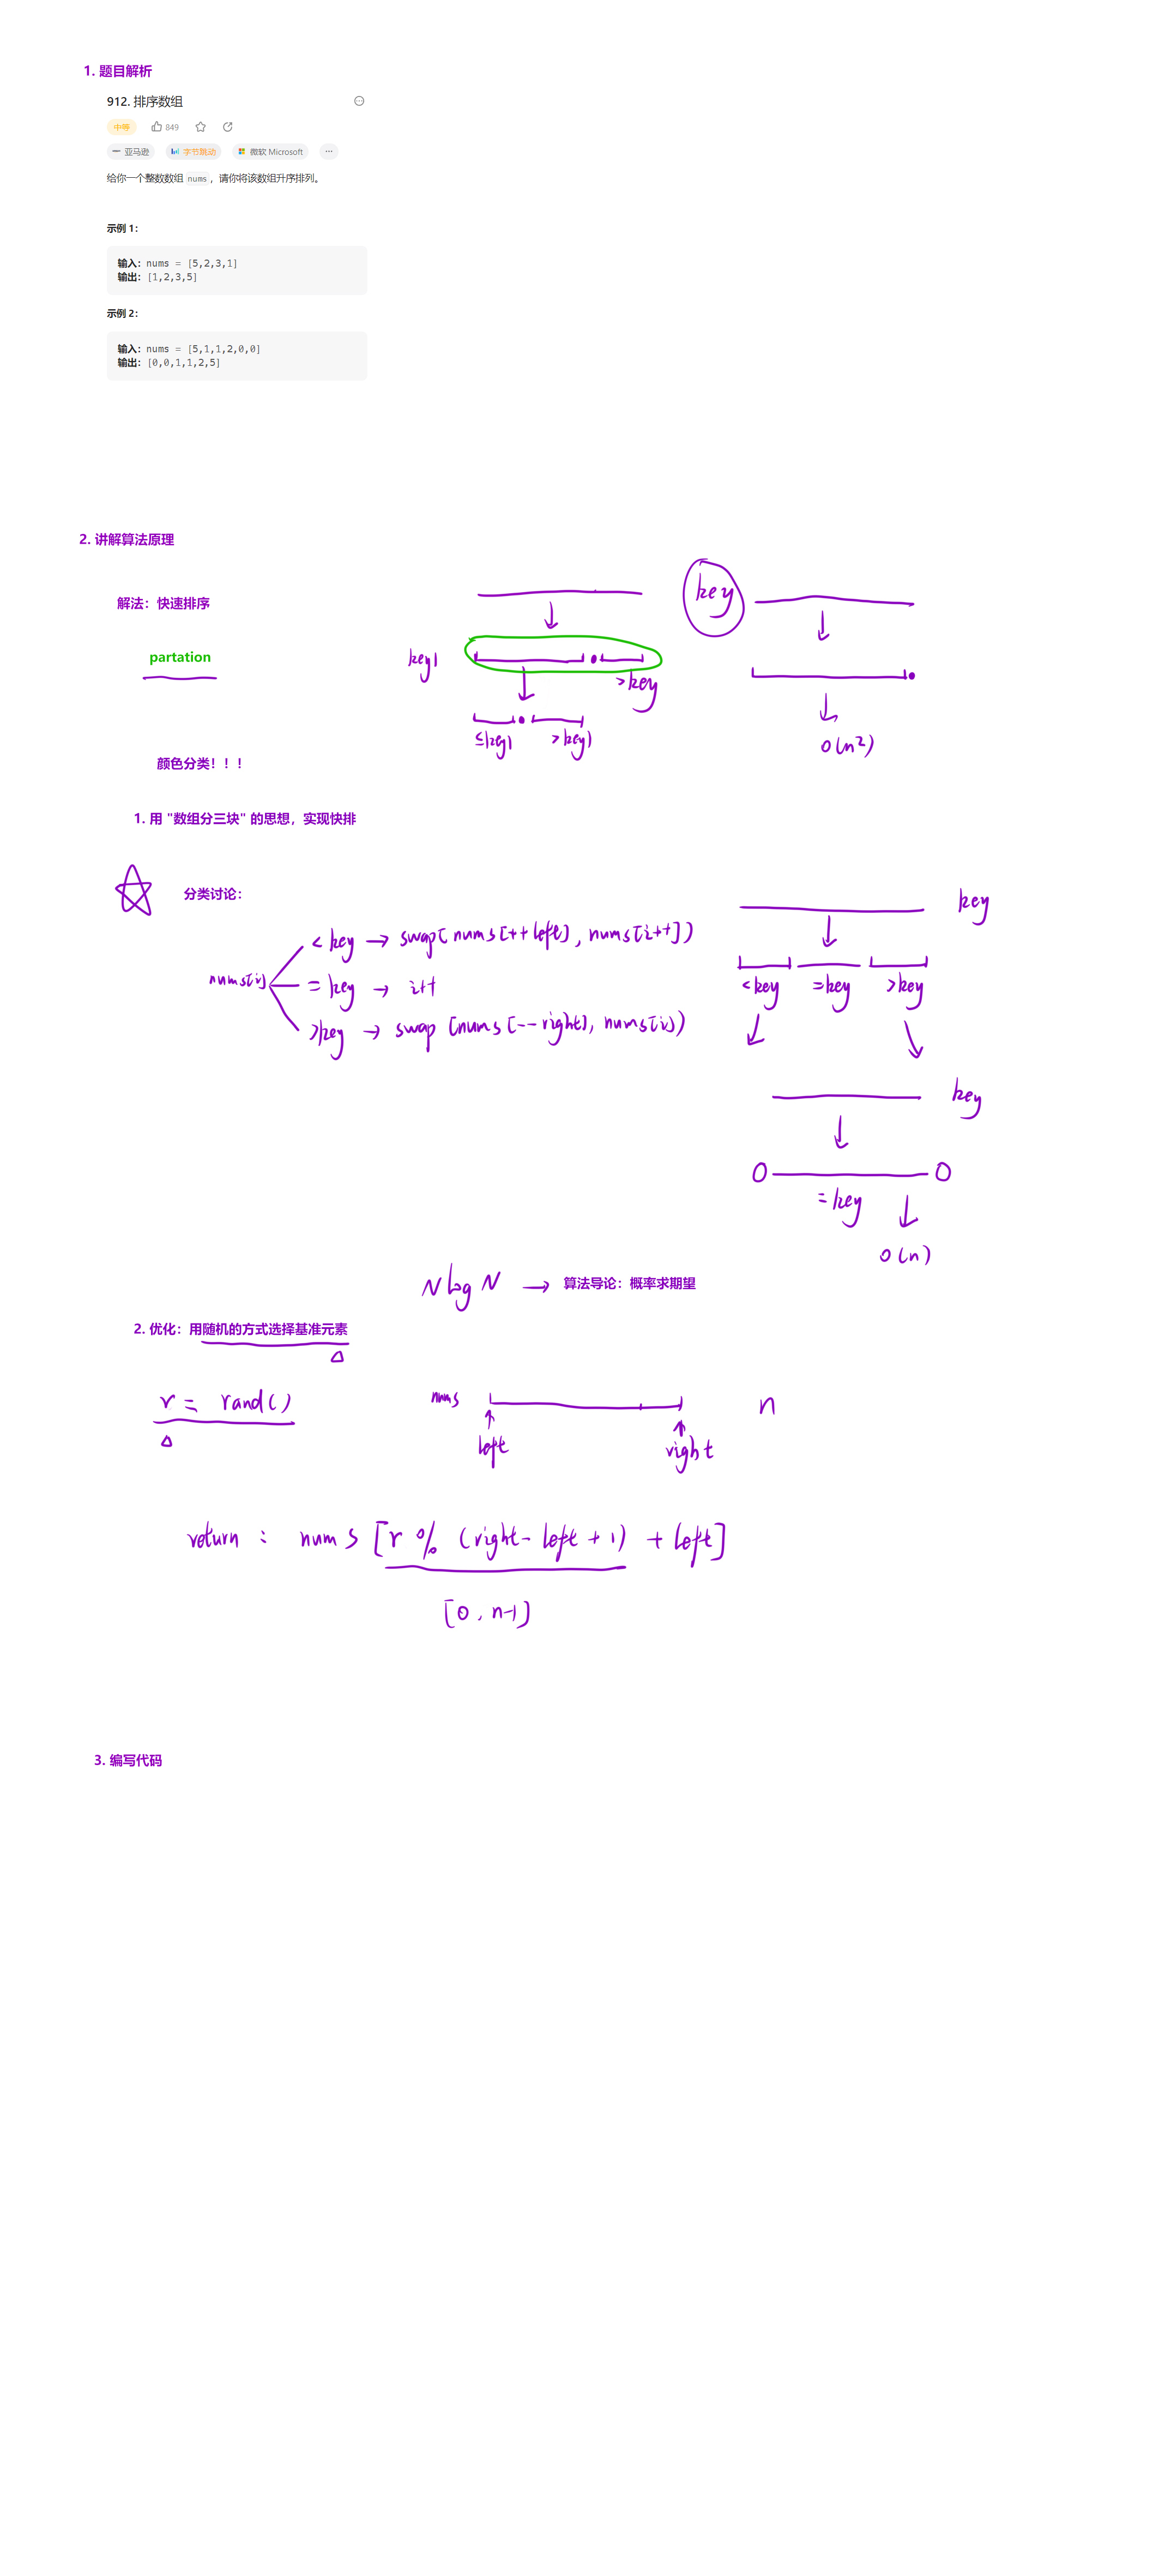 1. 题目解析
912. 排序数组
中等 849
亚马逊 字节跳动 微软 Microsoft ...
给你一个整数数组 nums，请你将该数组升序排列。
示例 1：
输入：nums = [5,2,3,1]
输出：[1,2,3,5]
示例 2：
输入：nums = [5,1,1,2,0,0]
输出：[0,0,1,1,2,5]
2. 讲解算法原理
解法：快速排序
key
partation
key1
>key
≤key1 >key1
O(n²)
颜色分类！！！
1. 用 "数组分三块" 的思想，实现快排
分类讨论：
key
nums[i]
<key → swap(nums[++left], nums[i++])
=key → i++
>key → swap(nums[--right], nums[i])
<key =key >key
key
0 0
=key
O(n)
NlogN → 算法导论：概率求期望
2. 优化：用随机的方式选择基准元素
r = rand()
nums n
left right
return : nums[r % (right - left + 1) + left]
[0, n-1]
3. 编写代码